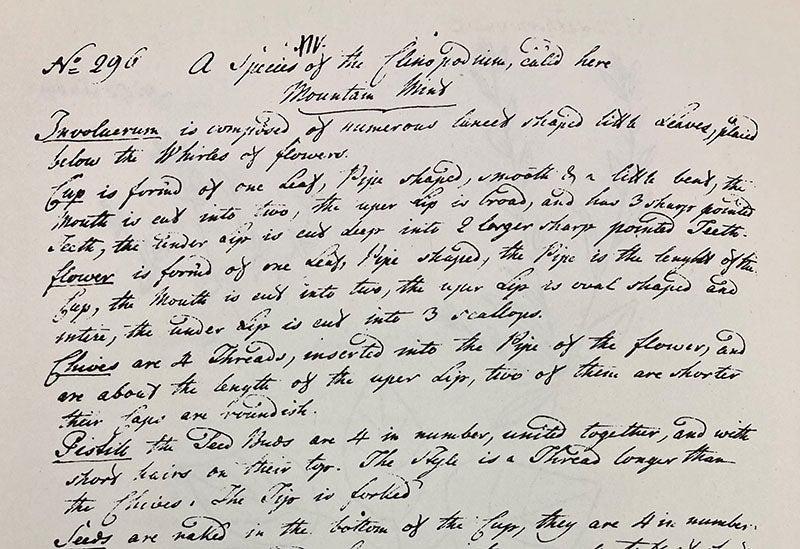 No 296 A Species of the Clinopodium, call'd here
Mountain Mint
Involucrum is composed of numerous lanced shaped little Leaves, placed
below the Whirles of flowers.
Cup is formd of one Leaf, Pipe shaped, smooth & a little bent, the
Mouth is cut into two, the uper Lip is broad, and has 3 sharp pointed
Teeth, the under Lip is cut deep into 2 larger sharp pointed Teeth.
flower is formd of one Leaf, Pipe shaped, the Pipe is the lenght of the
Cup, the Mouth is cut into two, the uper Lip is oval shaped and
intire, the under Lip is cut into 3 scallops.
Chives are 4 Threads, inserted into the Pipe of the flower, and
are about the length of the uper Lip, two of them are shorter
their Caps are roundish.
Pistill the Seed Buds are 4 in number, united together, and with
short hairs on their top. The Style is a Thread longer than
the Chives. The Tip is forked
Seeds are naked in the bottom of the Cup, they are 4 in number.